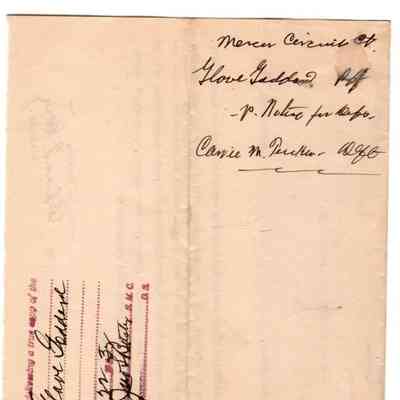 Mercer Circuit Ct.
Glove Goddard Plff
-vs. Notice for Depo.
Carrie M. Tucker - Deft
delivering a true copy of the
Glove Goddard
S. M. C.
D. S.